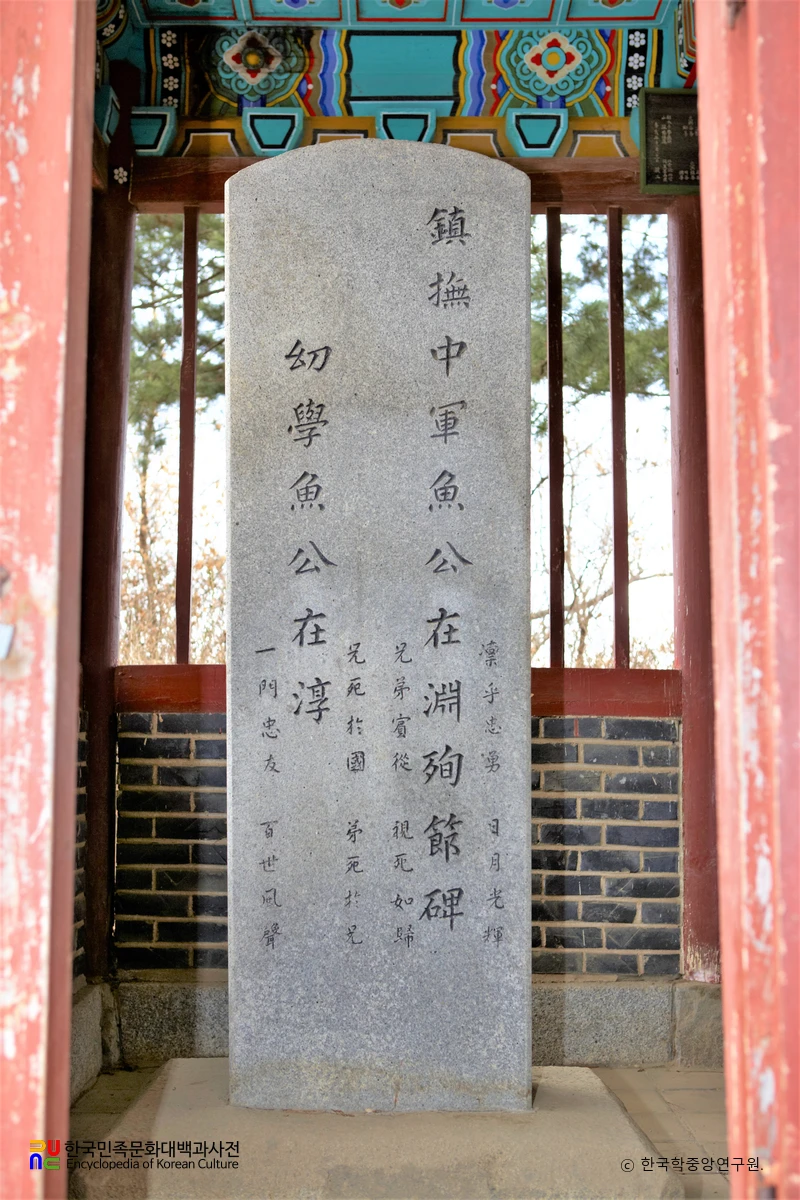 鎮撫中軍魚公在淵殉節碑
凛乎忠勇 日月光輝
兄弟賓從 視死如歸
幼學魚公在淳
兄死於國 弟死於兄
一門忠友 百世風聲
한국민족문화대백과사전
Encyclopedia of Korean Culture
© 한국학중앙연구원.